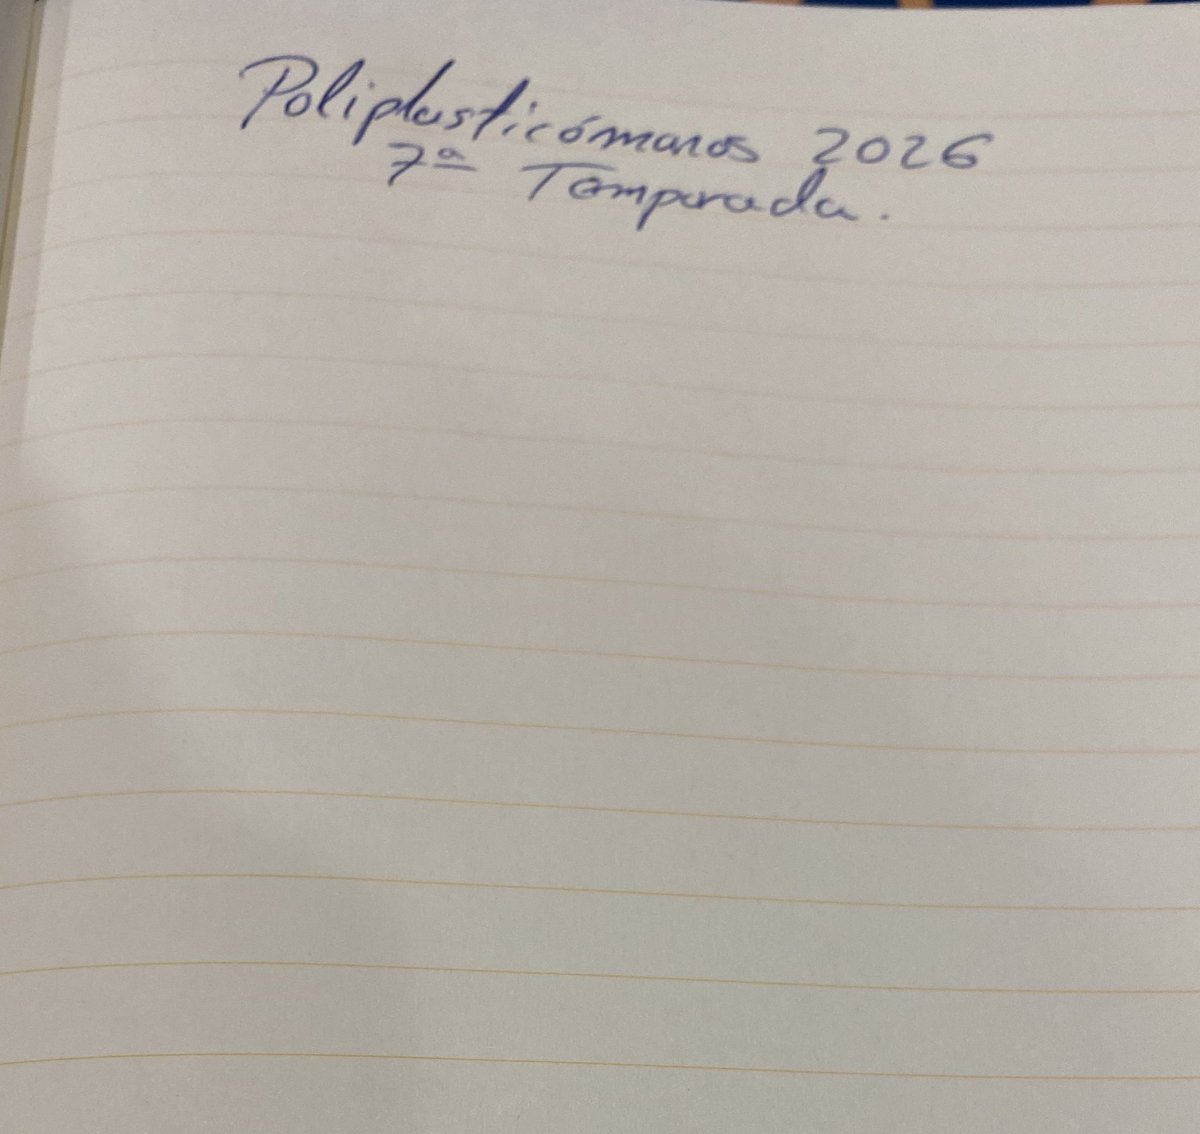 Poliplasticómanos 2026
7ª Temporada.